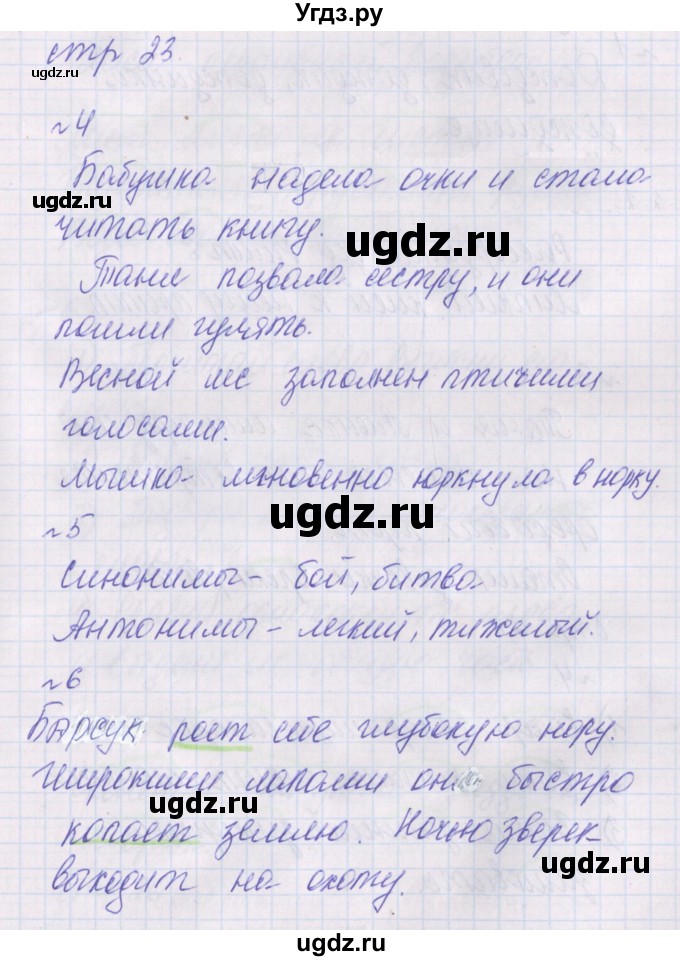 Угдз.ру
стр 23.
ugdz.ru
№4
Бабушка надела очки и стала
ugdz.ru
читать книгу.
ugdz.ru
Таня позвала сестру, и они
пошли гулять.
ugdz.ru
Весной лес заполнен птичими
голосами.
Мышка мгновенно юркнула в норку.
ugdz.ru
№5
Синонимы - бой, битва
ugdz.ru
Антонимы - легкий, тяжелый.
№6
ugdz.ru
Барсук роет себе глубокую нору.
Широкими лапами он быстро
ugdz.ru
копает землю. Ночью зверек
ugdz.ru
выходит на охоту.
ugdz.ru
ugdz.ru